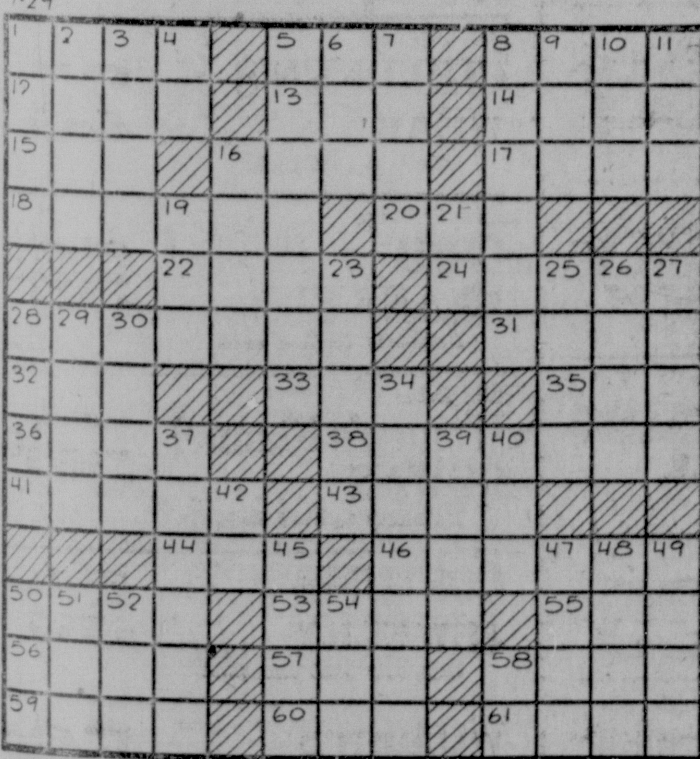 1 2 3 4 5 6 7 8 9 10 11
12 13 14
15 16 17
18 19 20 21
22 23 24 25 26 27
28 29 30 31
32 33 34 35
36 37 38 39 40
41 42 43
44 45 46 47 48 49
50 51 52 53 54 55
56 57 58
59 60 61